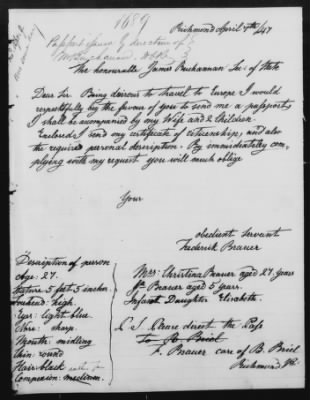 1689
Richmond April 7th/47
Passport issued by direction of
Mr Buchanan.
The honourable James Buchannan Sec: of State
Dear Sir. Being dairous to thavel to Europe I would
respectfully beg the favour of you to send me a passport,
I shall be accompanied by my Wife and 2 Children.
Enclosed I send my certificate of citizenship, and also
the required personal description. By immediantely com,
plying with my request you will much oblige
Your
obedient servant
Frederik Brauer
Description of person
Age: 27.
Stature 5 feet 5 inches.
Forehead: high.
Eyes: light blue.
Nose: sharp.
Mouth: midling
Chin: round
Hair black
Complexion: medium.
Mrs: Christina Brauer aged 27 years
Wm Brauer aged 5 years.
Infant Daughter Elizabeth.
P S Please direct the Pass
to B Briel
F. Brauer care of B. Briel
Richmond Va.